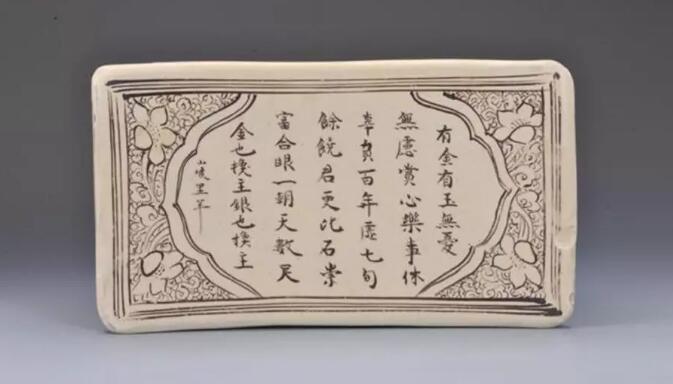 有金有玉無憂
無慮賞心樂事休
辜負百年虛七旬
餘饒君更比石崇
富合眼一朝天數足
金也換主銀也換主
山坡里羊